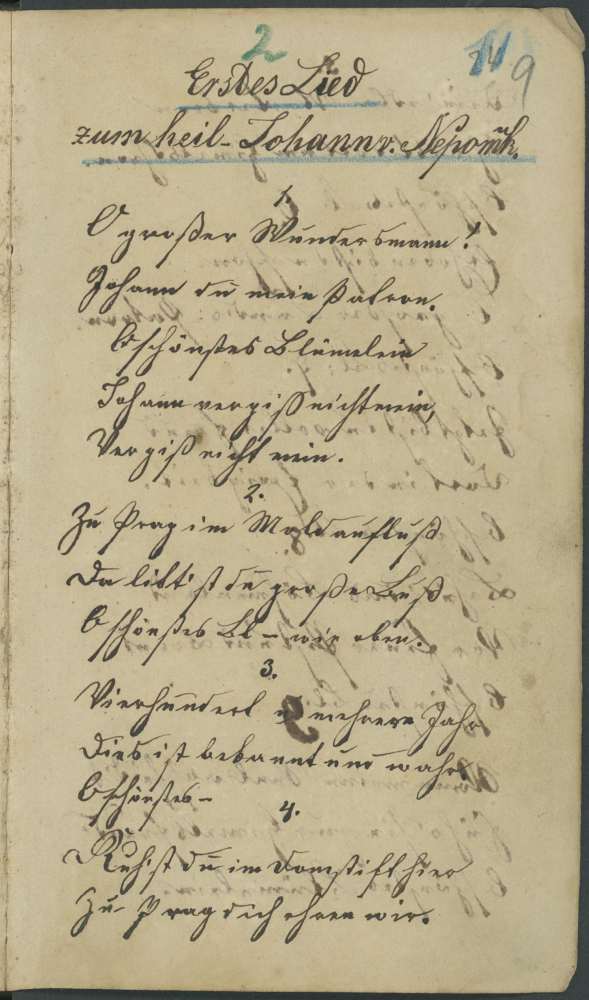 2
9
Erstes Lied
zum heil. Johann v. Nepomuk.
1.
O großer Wundersmann!
Johann du mein Patron.
O schönstes Blümelein
Johann vergiß nicht mein,
Vergiß nicht mein.
2.
Zu Prag im Moldaufluß
Da littist du große Buß
O schönstes Bl – wie oben.
3.
Vierhundert u mehrere Jahr
Dies ist bekannt und wahr.
O schönstes –
4.
Ruhist du im Domstift hier
Zu Prag dich ehren wir.